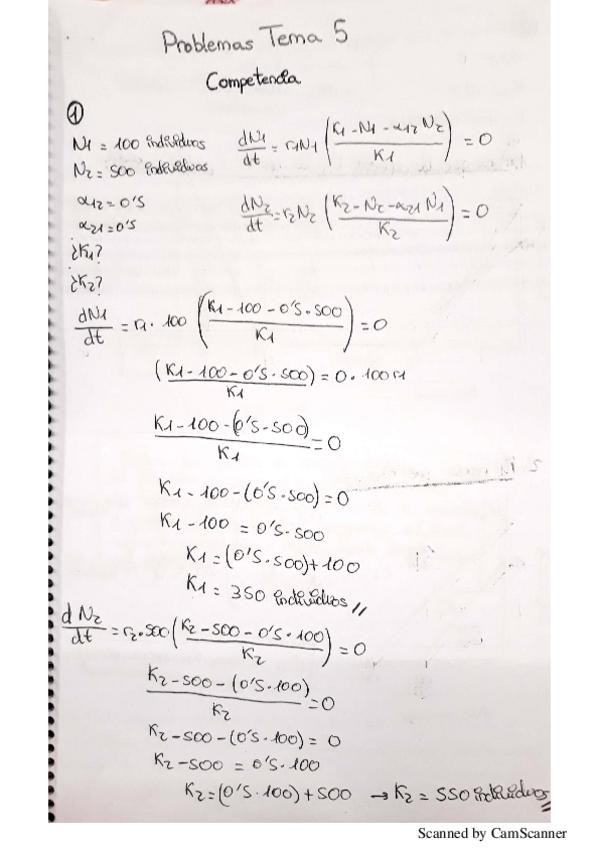 Problemas Tema 5
Competencia
①
N1 = 100 individuos
N2 = 500 individuos
α12 = 0'5
α21 = 0'5
¿K1?
¿K2?
dN1/dt = r1N1 ((K1 - N1 - α12 N2)/K1) = 0
dN2/dt = r2 N2 ((K2 - N2 - α21 N1)/K2) = 0
dN1/dt = r1 · 100 ((K1 - 100 - 0'5 · 500)/K1) = 0
((K1 - 100 - 0'5 · 500)/K1) = 0 · 100 r1
(K1 - 100 - (0'5 · 500))/K1 = 0
K1 - 100 - (0'5 · 500) = 0
K1 - 100 = 0'5 · 500
K1 = (0'5 · 500) + 100
K1 = 350 individuos //
dN2/dt = r2 · 500 ((K2 - 500 - 0'5 · 100)/K2) = 0
(K2 - 500 - (0'5 · 100))/K2 = 0
K2 - 500 - (0'5 · 100) = 0
K2 - 500 = 0'5 · 100
K2 = (0'5 · 100) + 500 → K2 = 550 individuos
Scanned by CamScanner